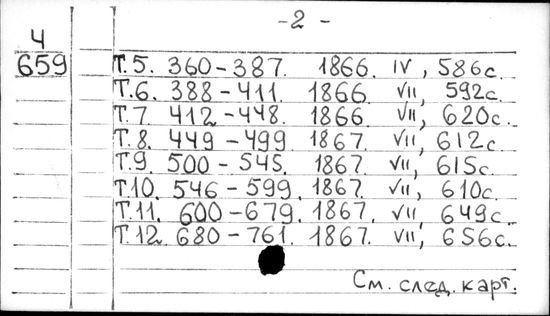 -2-
Ч
659
Т.5. 360-387. 1866. IV, 586с.
Т.6. 388-411. 1866. VII, 592с.
Т.7 412-448. 1866. VII, 620с.
Т.8. 449-499 1867. VII, 612с.
Т.9. 500-545. 1867. VII, 615с.
Т10. 546-599. 1867. VII, 610с.
Т.11. 600-679. 1867. VII, 649с.
Т.12. 680-761. 1867. VII, 656с.
См. след. карт.